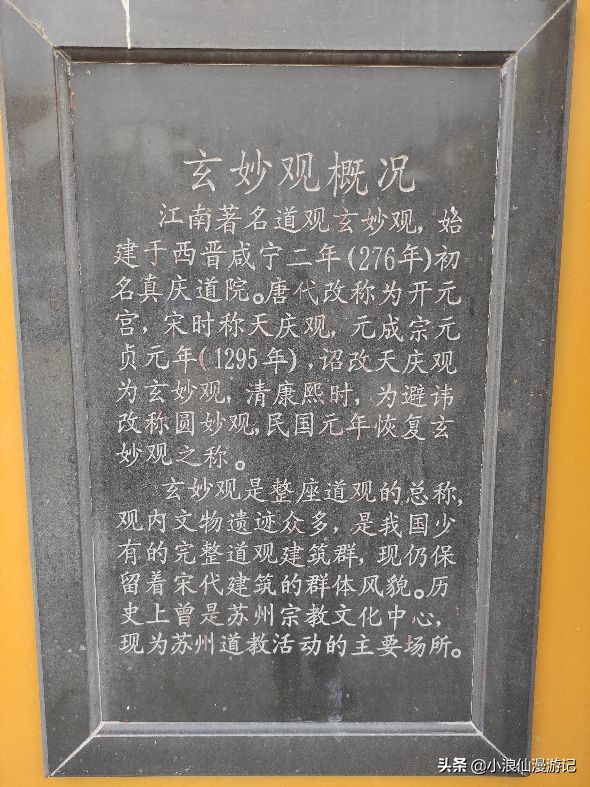 玄妙观概况
江南著名道观玄妙观，始
建于西晋咸宁二年(276年)初
名真庆道院。唐代改称为开元
宫，宋时称天庆观，元成宗元
贞元年(1295年)，诏改天庆观
为玄妙观，清康熙时，为避讳
改称圆妙观，民国元年恢复玄
妙观之称。
玄妙观是整座道观的总称，
观内文物遗迹众多，是我国少
有的完整道观建筑群，现仍保
留着宋代建筑的群体风貌。历
史上曾是苏州宗教文化中心，
现为苏州道教活动的主要场所。
头条 @小浪仙漫游记